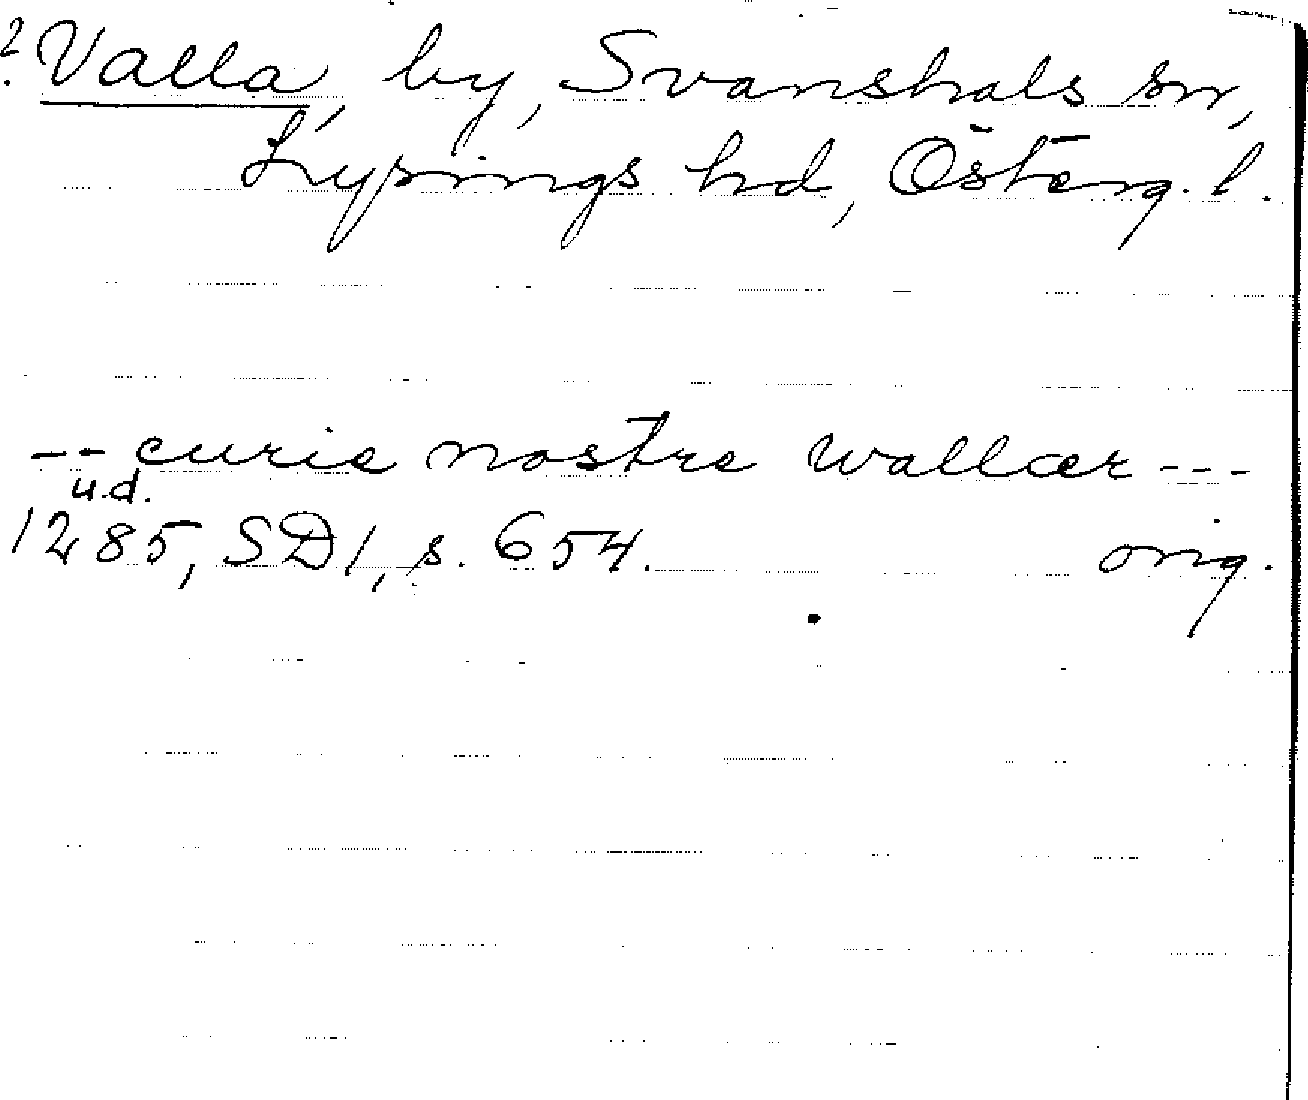 ? Valla, by, Svanshals sn,
Lysings hd, Österg. l.
-- curie nostre wallær ---
u.d.
1285, SD 1, s. 654. orig.